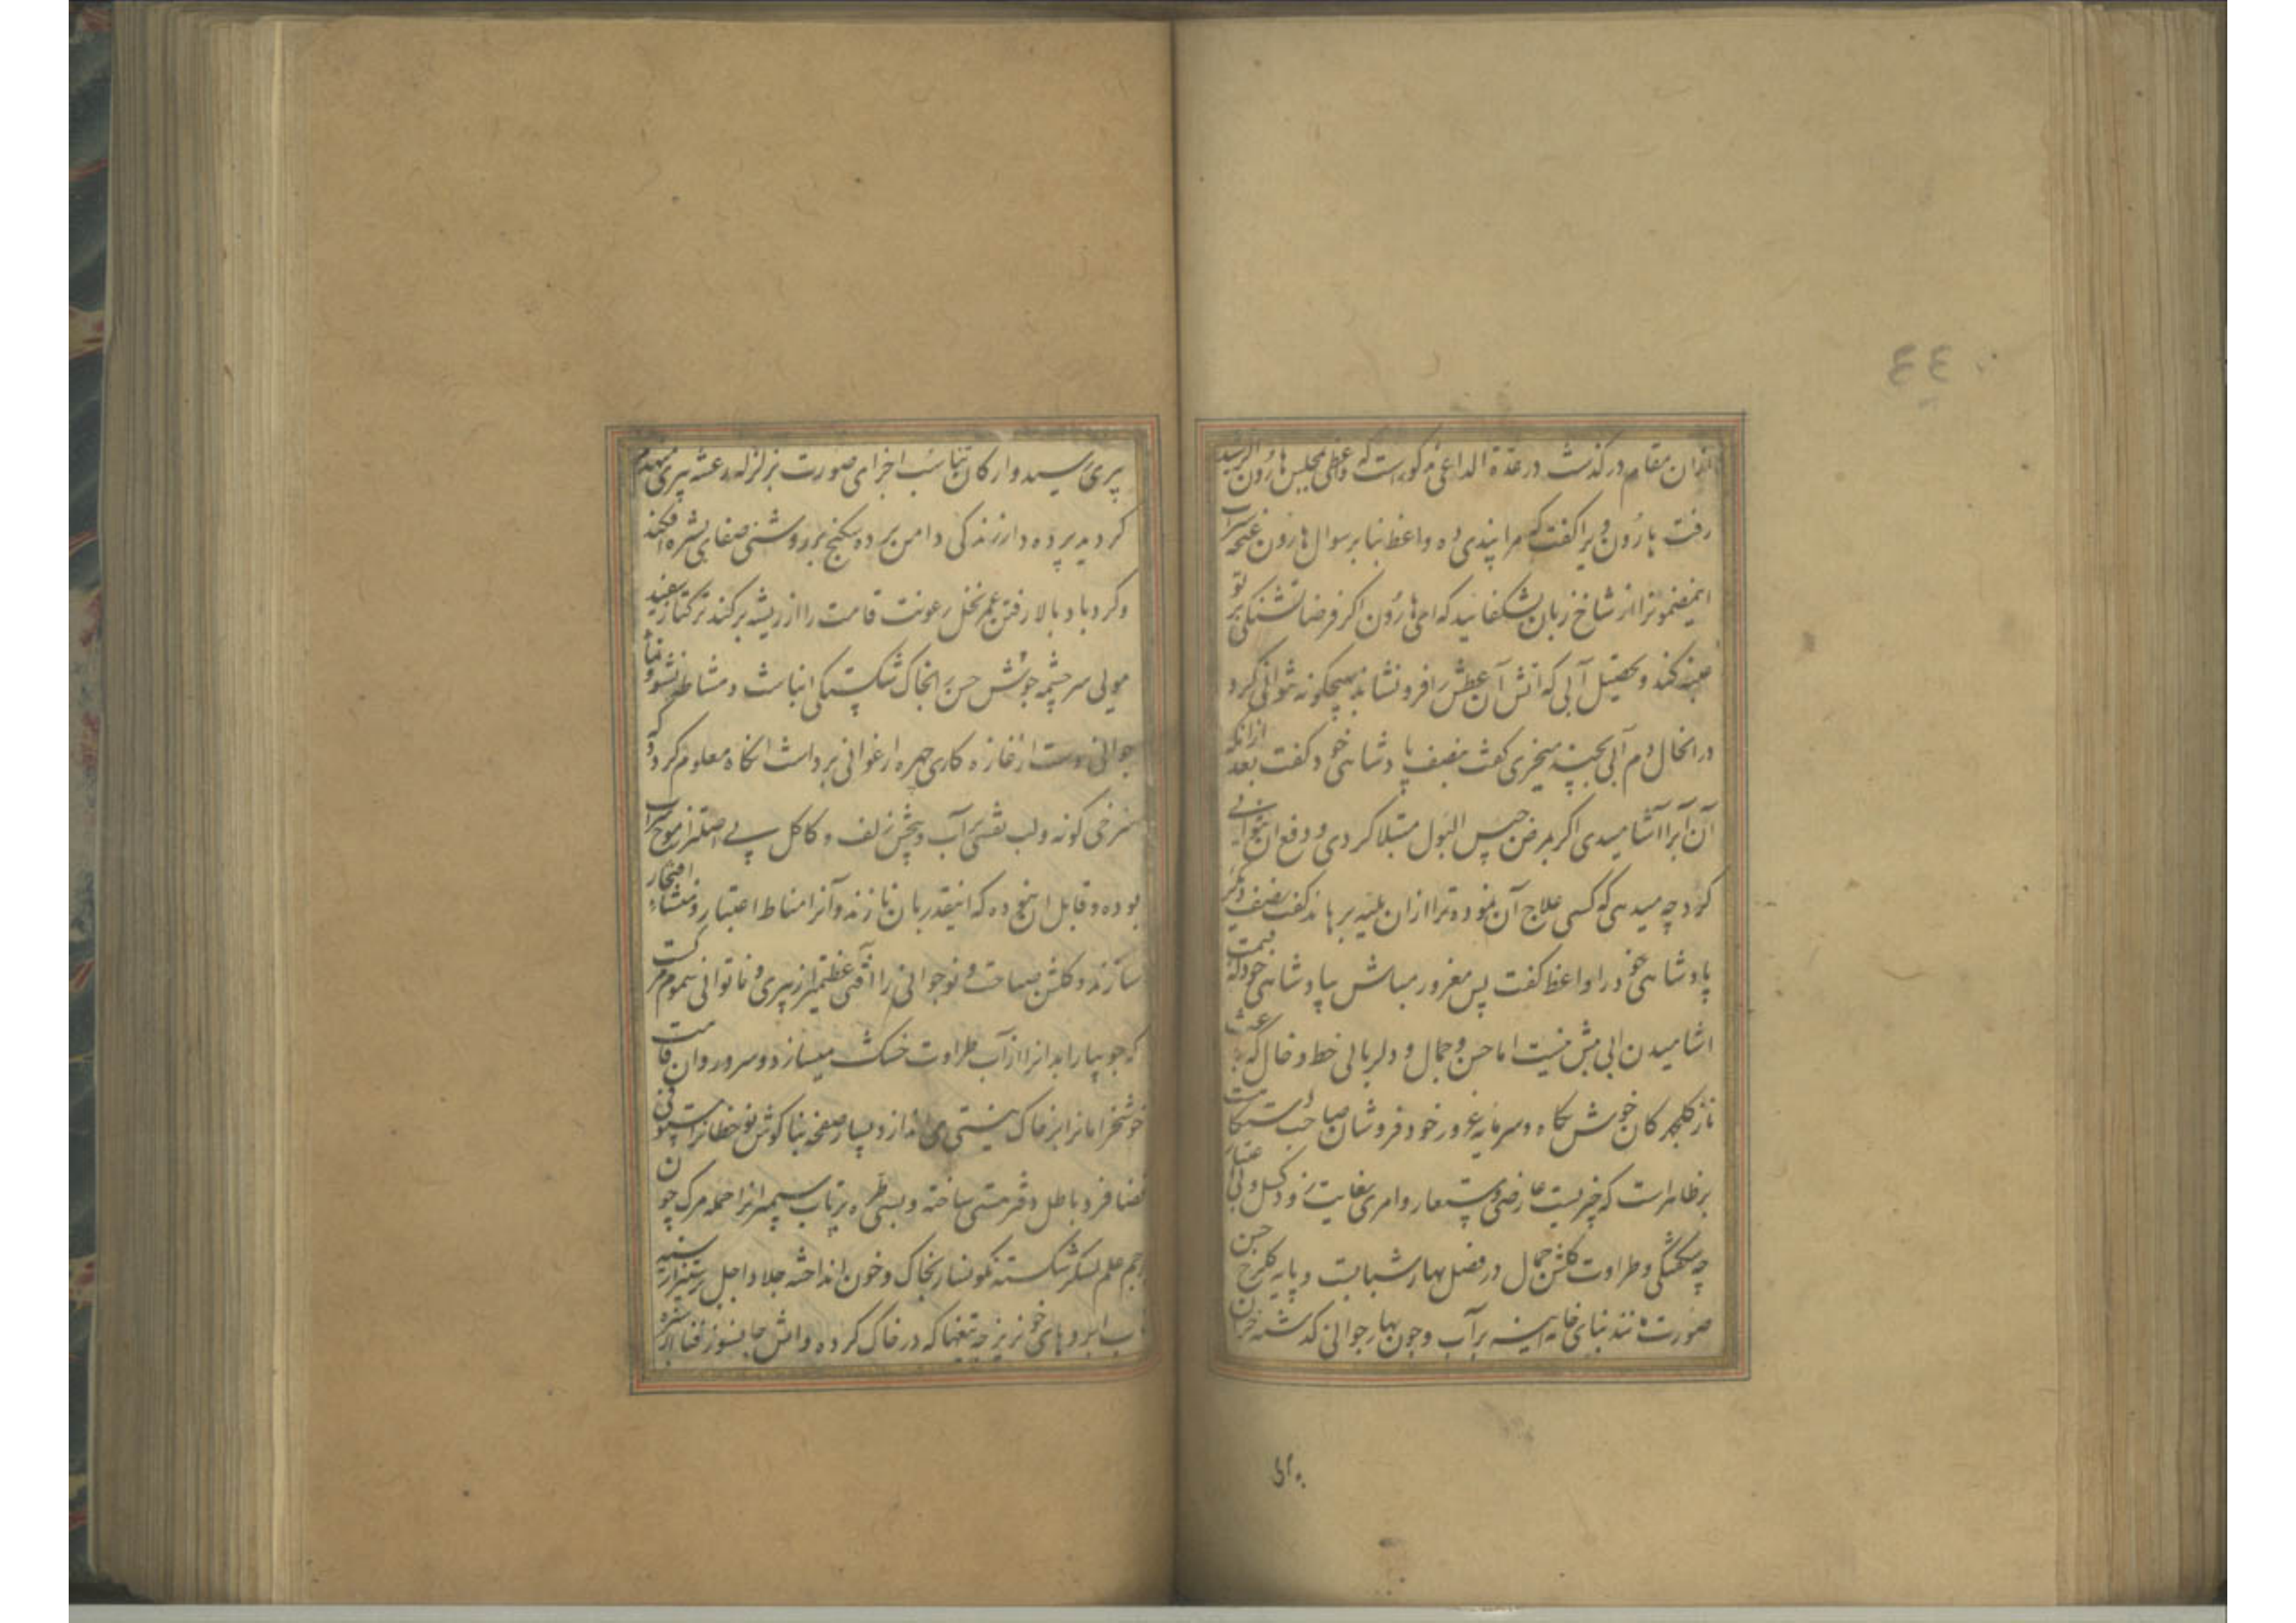 ٤٤
ازان مقام درگذشت در عدة الداعی مذکورست که واعظی بمجلس هارون الرشید
رفت هارون ویرا گفت که مرا پندی ده واعظ بنا بر سوال هارون غنچه
اینمضمونرا از شاخ زبان بشکفانید که ای هارون اگر فرضا تشنگی بر تو
غلبه کند و تحصیل آبی که اتش آن عطش را فرو نشاند بهیچگونه نتوانی کرد
در انحال دم آبی بچند میخری گفت بنصف پادشاهی خود گفت بعد ازانکه
آن آبرا آشامیدی اگر بمرض حبس البول مبتلا کردی و دفع ان نتوانی
کرد چه میدهی که کسی علاج آن نموده ترا ازان بلیه برهاند گفت نصف دیگر
پادشاهی خود را واعظ گفت پس مغرور مباش بپادشاهی خود که قیمت
اشامیدن ابی بیش نیست اما حسن و جمال و دلربائی خط و خال که باعث
ناز گلچهرکان خوش نگاه و سرمایه غرور خود فروشان صباحت دستگاست
بر ظاهراست که چیزیست عارضی و مستعار و امری بغایت زود گسل و بی اعتبار
چه شکفتگی و طراوت گلشن جمال در فصل بهار شبابست و پایه کلبرخ حسن
صورت مانند بنای خانه اینه بر آب و چون بهار جوانی گذشته خزان
پیری رسید و ارکان تناسب اجزای صورت بزلزله رعشه پیری منهدم
گردید پرده دار زندگی دامن پرده بگنج بر روشنی صفای بشره افکند
و گردباد بالا رفتن عمر نخل رعونت قامت را از ریشه برکند ترکتاز سفید
مویی سرچشمه جوشش حسن را بخاک شکستگی انباشت و مشاطه نشو و نما
جوانی دست از غازه کاری چهره ارغوانی برداشت انکاه معلوم کردد که
سرخی گونه و لب نقشی بر آب و پیچش زلف و کاکل پی اهتزاز موج سراب
بوده و قابل ان نبوده که اینقدر بان نازند و آنرا مناط اعتبار و منشاء افتخار
سازند و گلشن صباحت و نوجوانی را آفتی عظیمتر از پیری و ناتوانی سموم مرکست
که جویبار ابدانرا از آب طراوت خشک میسازد و سرو روان قامت
خوشخرامانرا بر خاک نیستی می اندازد بسا صفحه بناکوش نوخطانرا مستوفی
قضا فرد باطل دفتر هستی ساخته و بسی طره پرتاب سیمبرانرا حمله مرک چون
پرچم علم لشکر شکسته نگونسار بخاک و خون انداخته جلاد اجل
ب ابروهای خونریز چه تیغها که در خاک کرده و اتش جانسوز فنا از